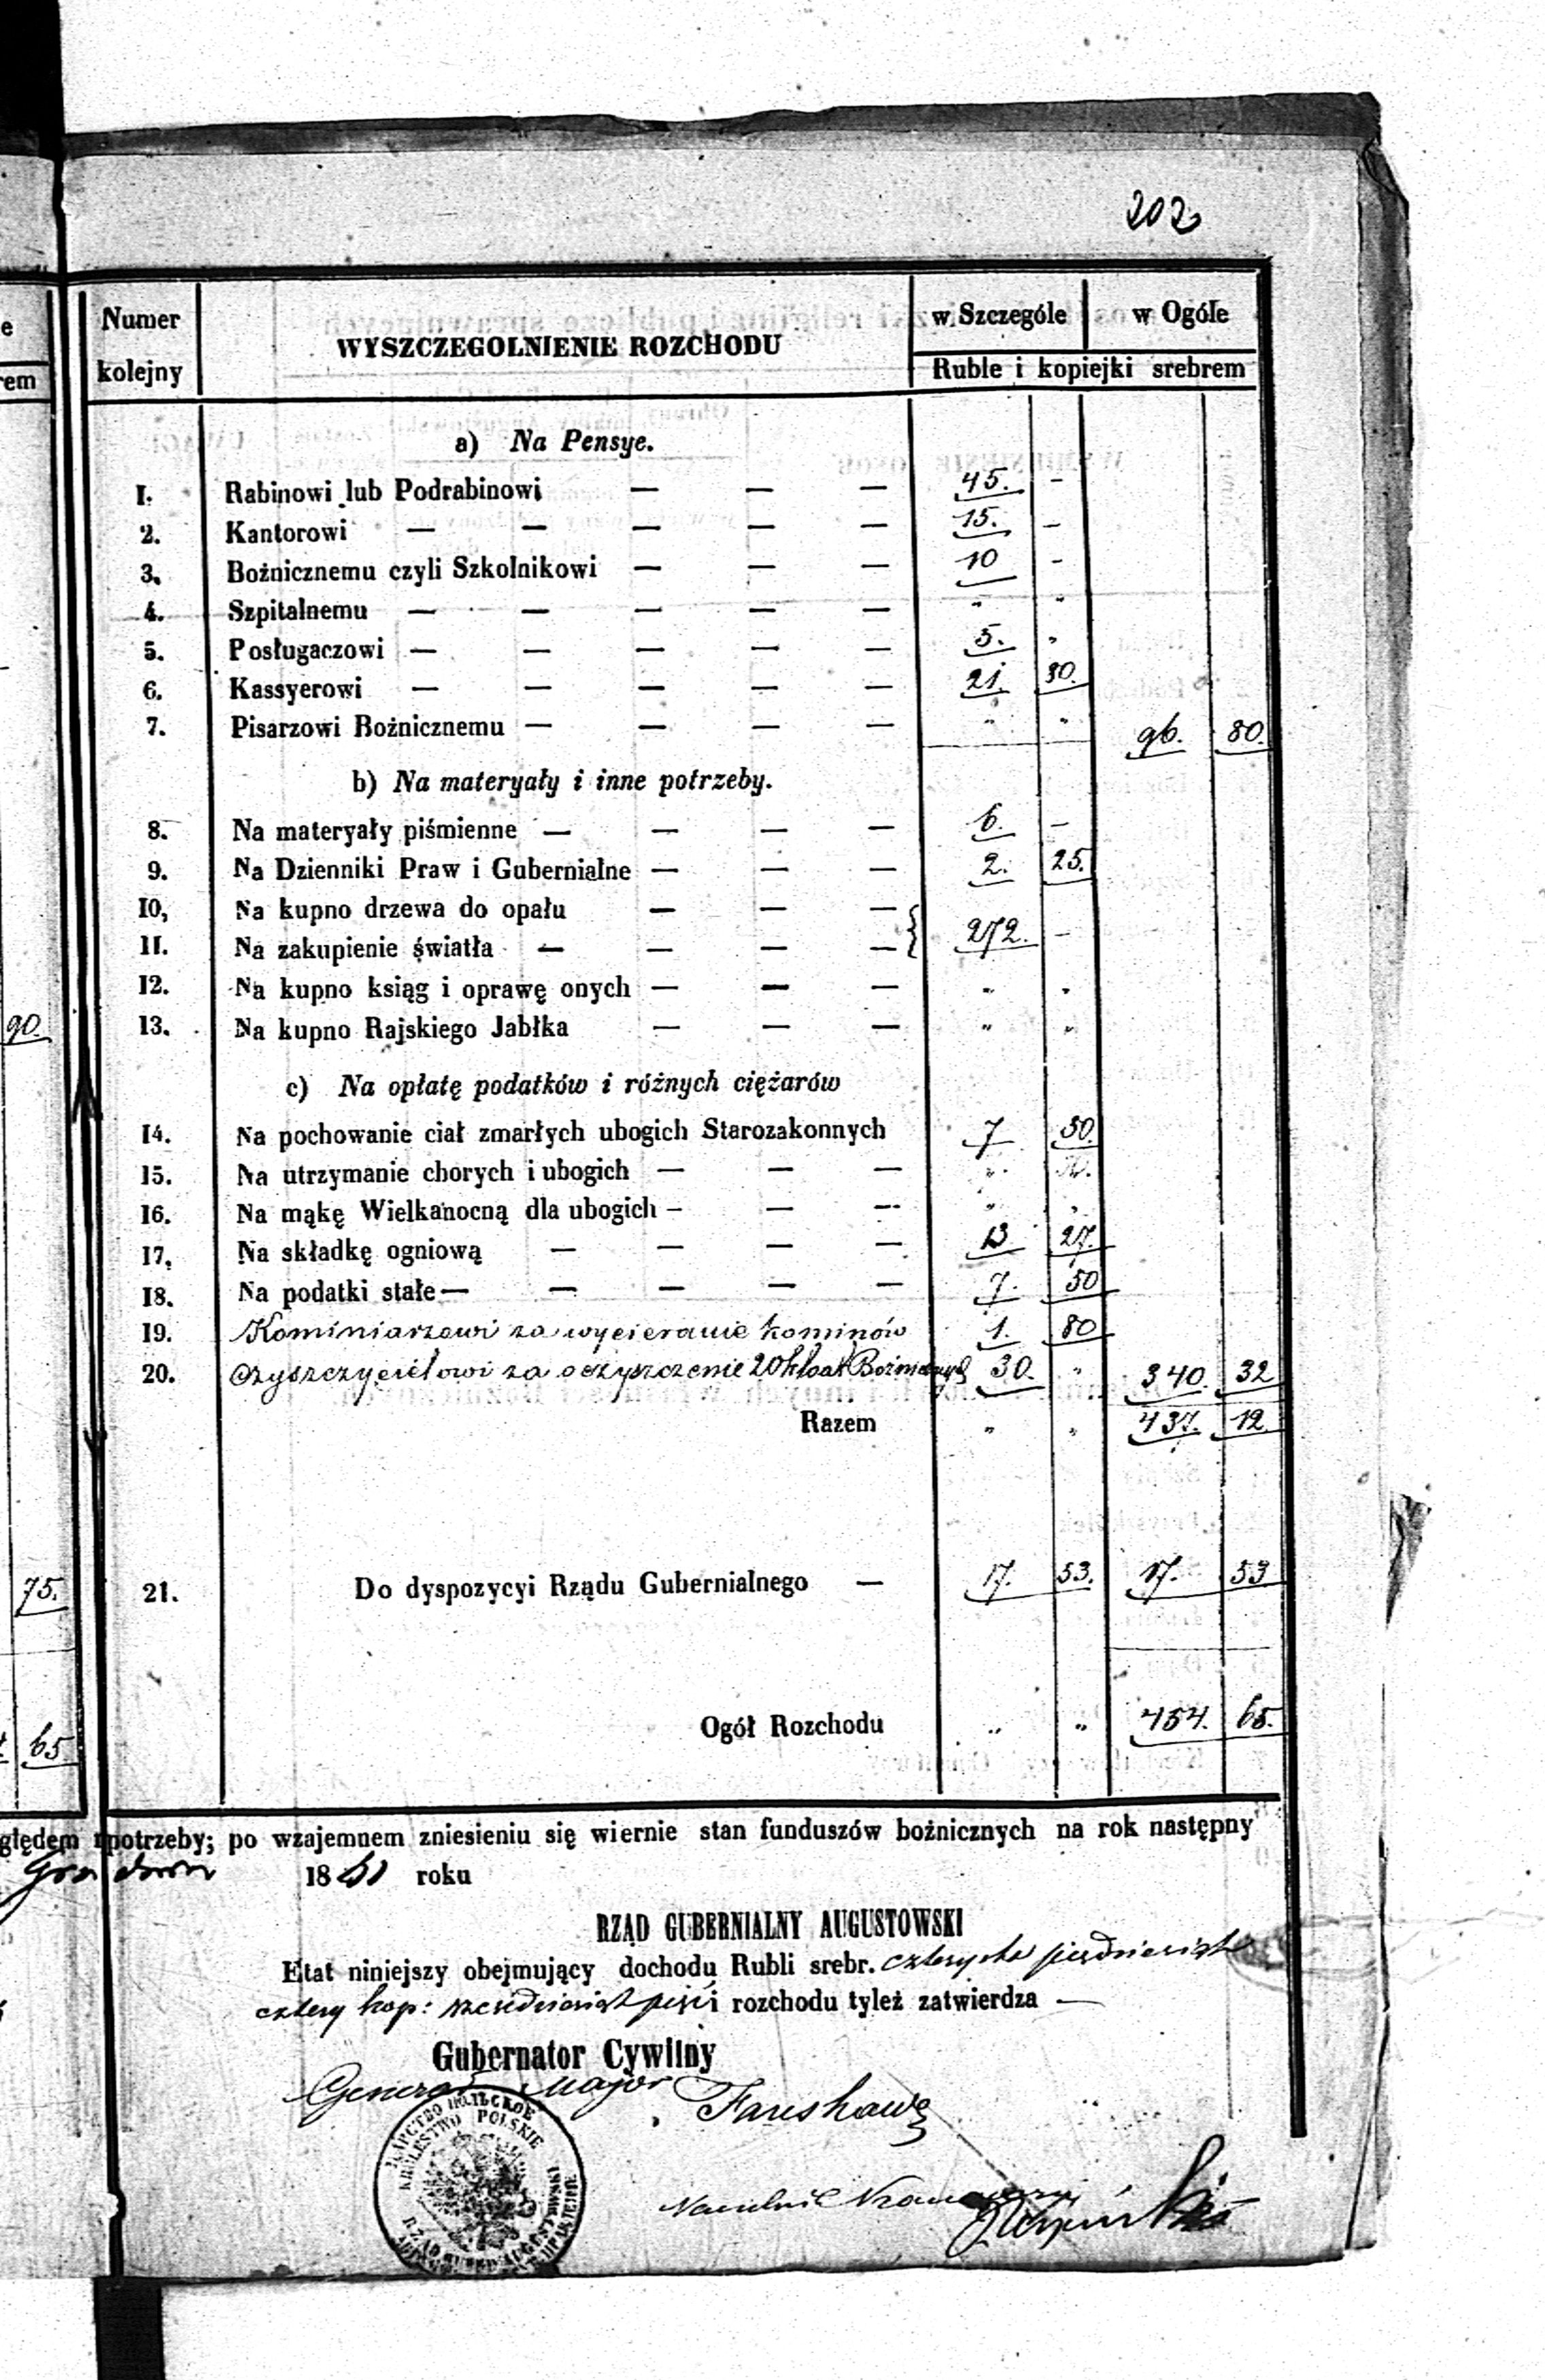 202
e
rem
Numer kolejny WYSZCZEGOLNIENIE ROZCHODU w Szczególe w Ogóle
Ruble i kopiejki srebrem
a) Na Pensye.
I. Rabinowi lub Podrabinowi — — — 45. -
2. Kantorowi — — — — — 15. -
3. Bożnicznemu czyli Szkolnikowi — — — 10 -
4. Szpitalnemu — — — — — " "
5. Posługaczowi — — — — — 5. "
6. Kassyerowi — — — — — 21. 80.
7. Pisarzowi Bożnicznemu — — — — " " 96. 80.
b) Na materyały i inne potrzeby.
8. Na materyały piśmienne — — — — 6. —
9. Na Dzienniki Praw i Gubernialne — — — 2. 25.
10, Na kupno drzewa do opału — — —
11. Na zakupienie światła — — — — } 272. —
12. Na kupno ksiąg i oprawę onych — — — " "
90. 13. Na kupno Rajskiego Jabłka — — — " "
c) Na opłatę podatków i różnych ciężarów
14. Na pochowanie ciał zmarłych ubogich Starozakonnych 7 50.
15. Na utrzymanie chorych i ubogich — — — "
16. Na mąkę Wielkanocną dla ubogich — — — " "
17, Na składkę ogniową — — — — 13 27.
18. Na podatki stałe — — — — 7. 50
19. Kominiarzowi za wycieranie kominów 1. 80
20. Czyszczycielowi za oczyszczenie 20 kloak Bożnicznych 30. " 340. 32
Razem " " 437. 12.
75. 21. Do dyspozycyi Rządu Gubernialnego — 17. 53. 17. 53
65 Ogół Rozchodu " " 454. 65.
ględem potrzeby; po wzajemnem zniesieniu się wiernie stan funduszów bożnicznych na rok następny
1861 roku
RZĄD GUBERNIALNY AUGUSTOWSKI
Etat niniejszy obejmujący dochodu Rubli srebr. czterysta pięćdziesiąt
cztery kop: sześćdziesiąt pięć i rozchodu tyleż zatwierdza —
Gubernator Cywilny
Generał Major
KRÓLESTWO POLSKIE
Naczelnik